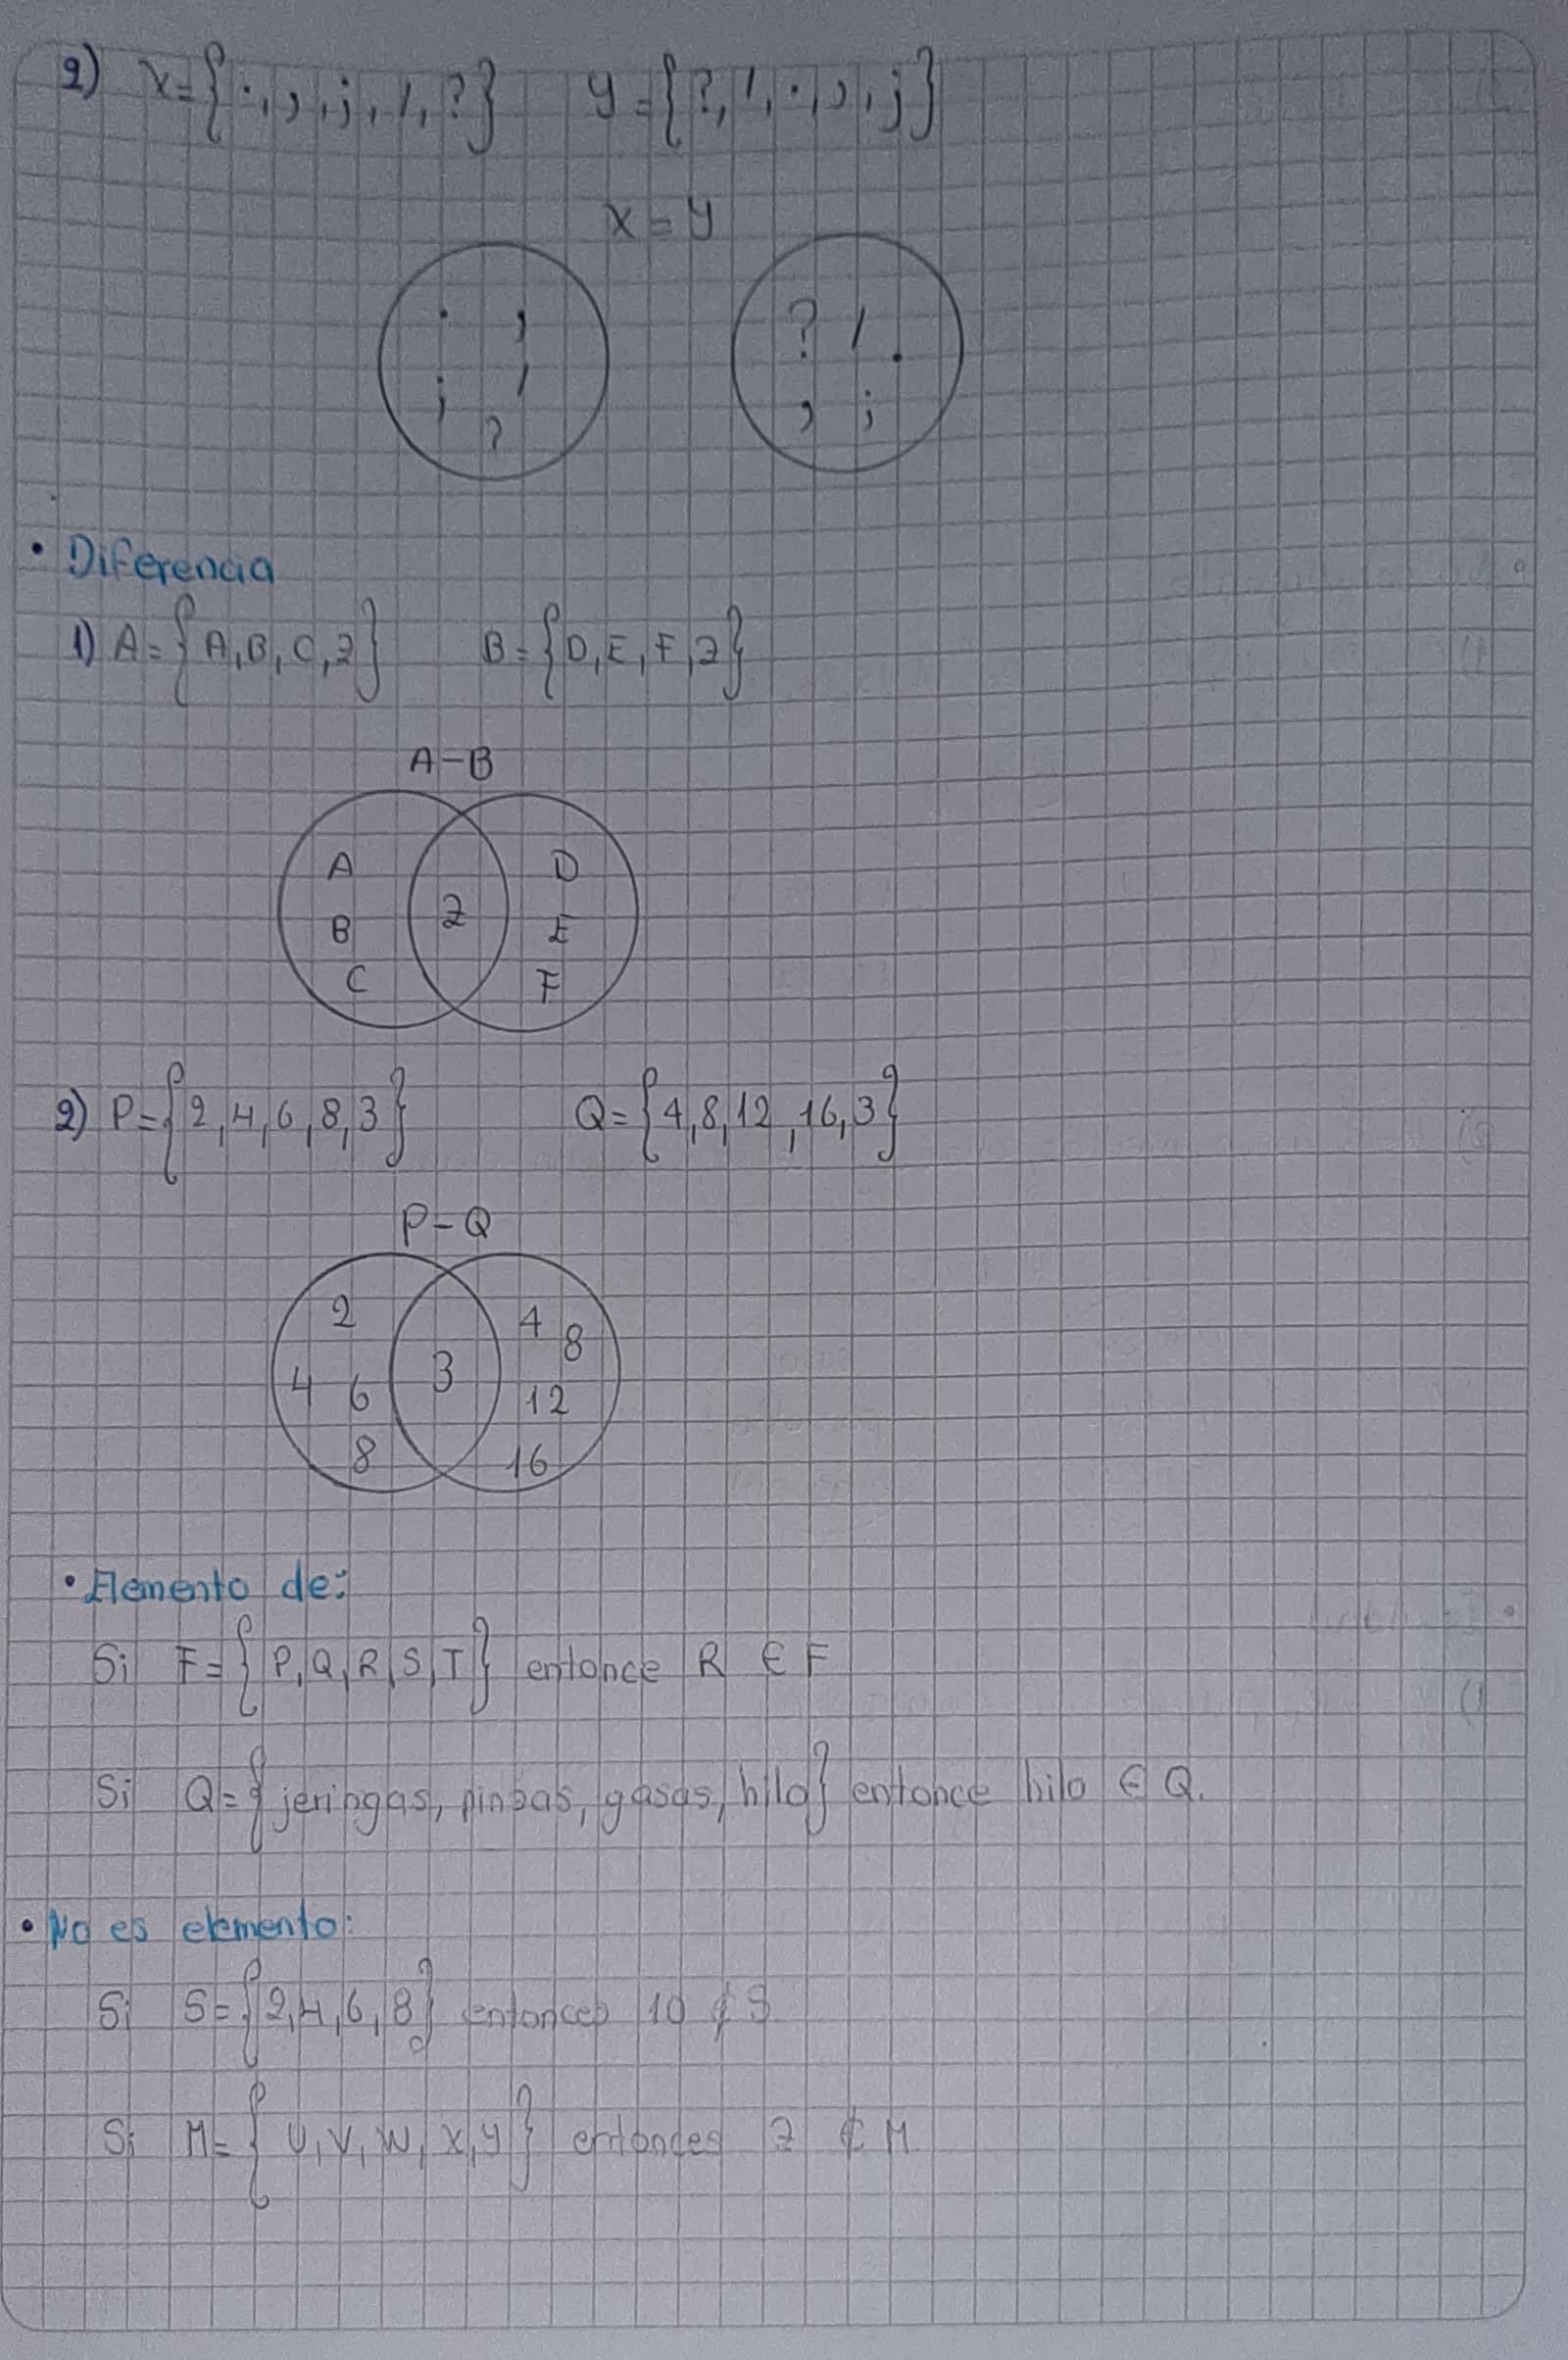 2) X={., ,, ;, /, ?} Y={?, /, ., ,, ;}
X=Y
. , ? / .
; / , ;
?
• Diferencia
1) A={A,B,C,Z} B={D,E,F,Z}
A-B
A D
B Z E
C F
2) P={2,4,6,8,3} Q={4,8,12,16,3}
P-Q
2 4 8
4 6 3 12
8 16
• Elemento de:
Si F={P,Q,R,S,T} entonce R ∈ F
Si Q={jeringas, pinzas, gasas, hilo} entonce hilo ∈ Q.
• No es elemento:
Si S={2,4,6,8} entonces 10 ∉ S
Si M={U,V,W,X,Y} entonces Z ∉ M